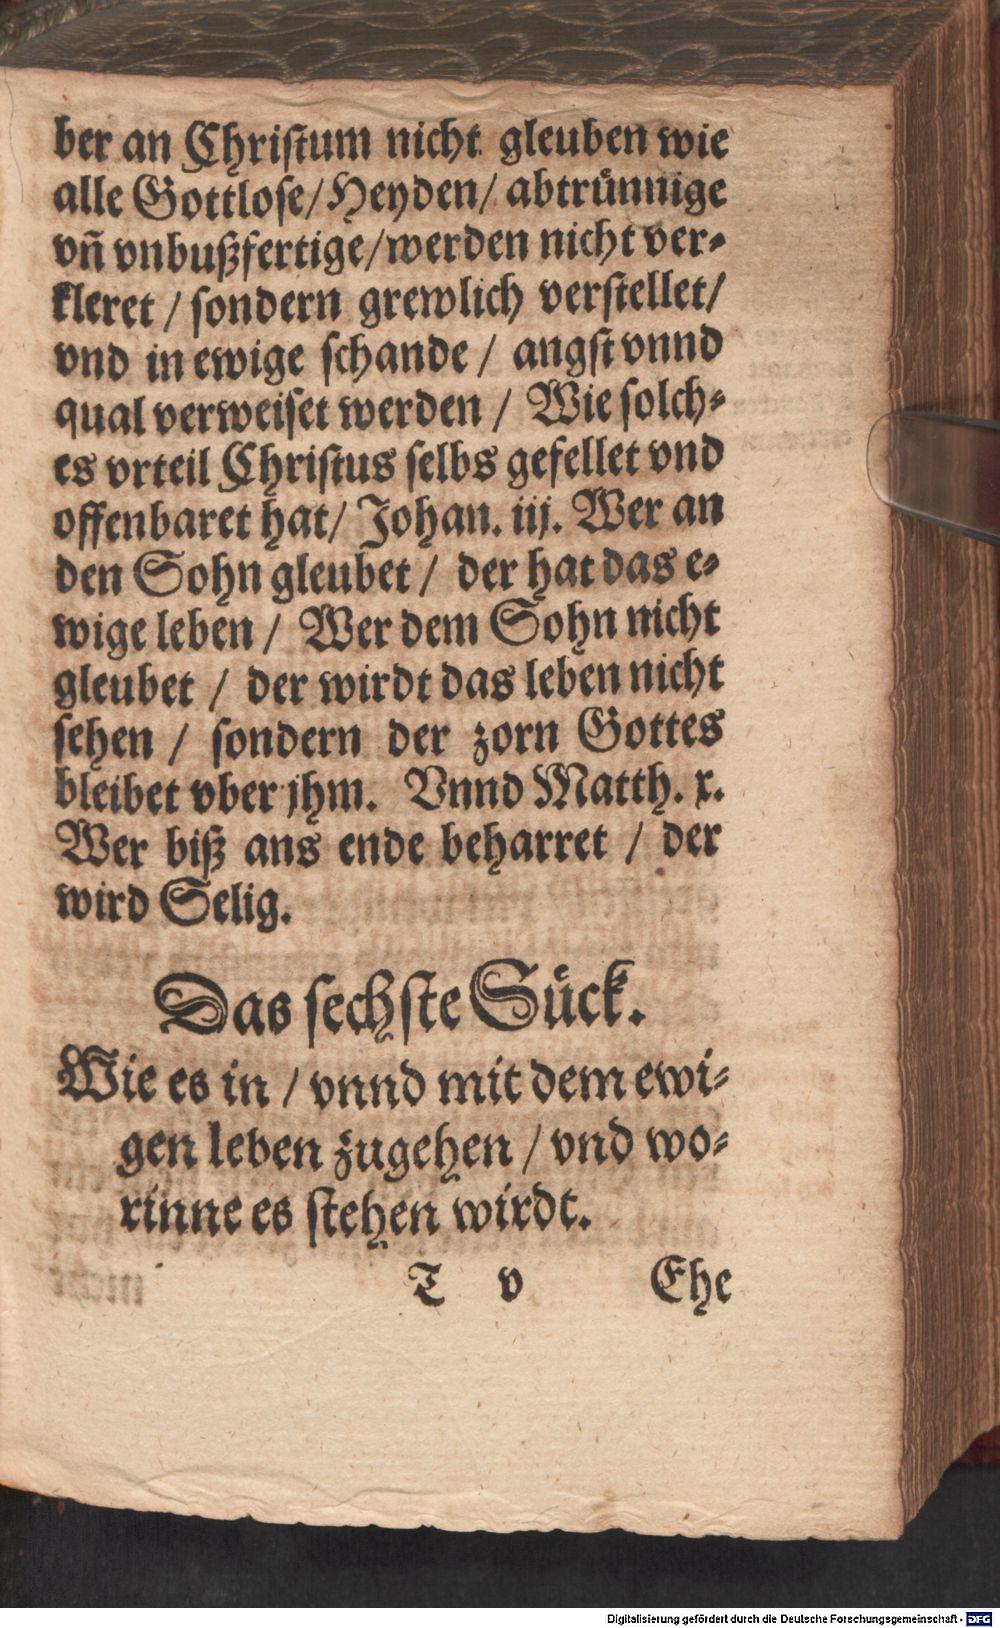 ber an Christum nicht gleuben wie
alle Gottlose/Heyden/ abtrünnige
vñ vnbußfertige/werden nicht ver⸗
kleret / sondern grewlich verstellet/
vnd in ewige schande / angst vnnd
qual verweiset werden / Wie solch⸗
es vrteil Christus selbs gefellet vnd
offenbaret hat/ Johan. iij. Wer an
den Sohn gleubet / der hat das e⸗
wige leben / Wer dem Sohn nicht
gleubet / der wirdt das leben nicht
sehen / sondern der zorn Gottes
bleibet vber jhm. Vnnd Matth. x.
Wer biß ans ende beharret / der
wird Selig.
Das sechste Sück.
Wie es in / vnnd mit dem ewi⸗
gen leben zugehen / vnd wo⸗
rinne es stehen wirdt.
T v Ehe
Digitalisierung gefördert durch die Deutsche Forschungsgemeinschaft - DFG